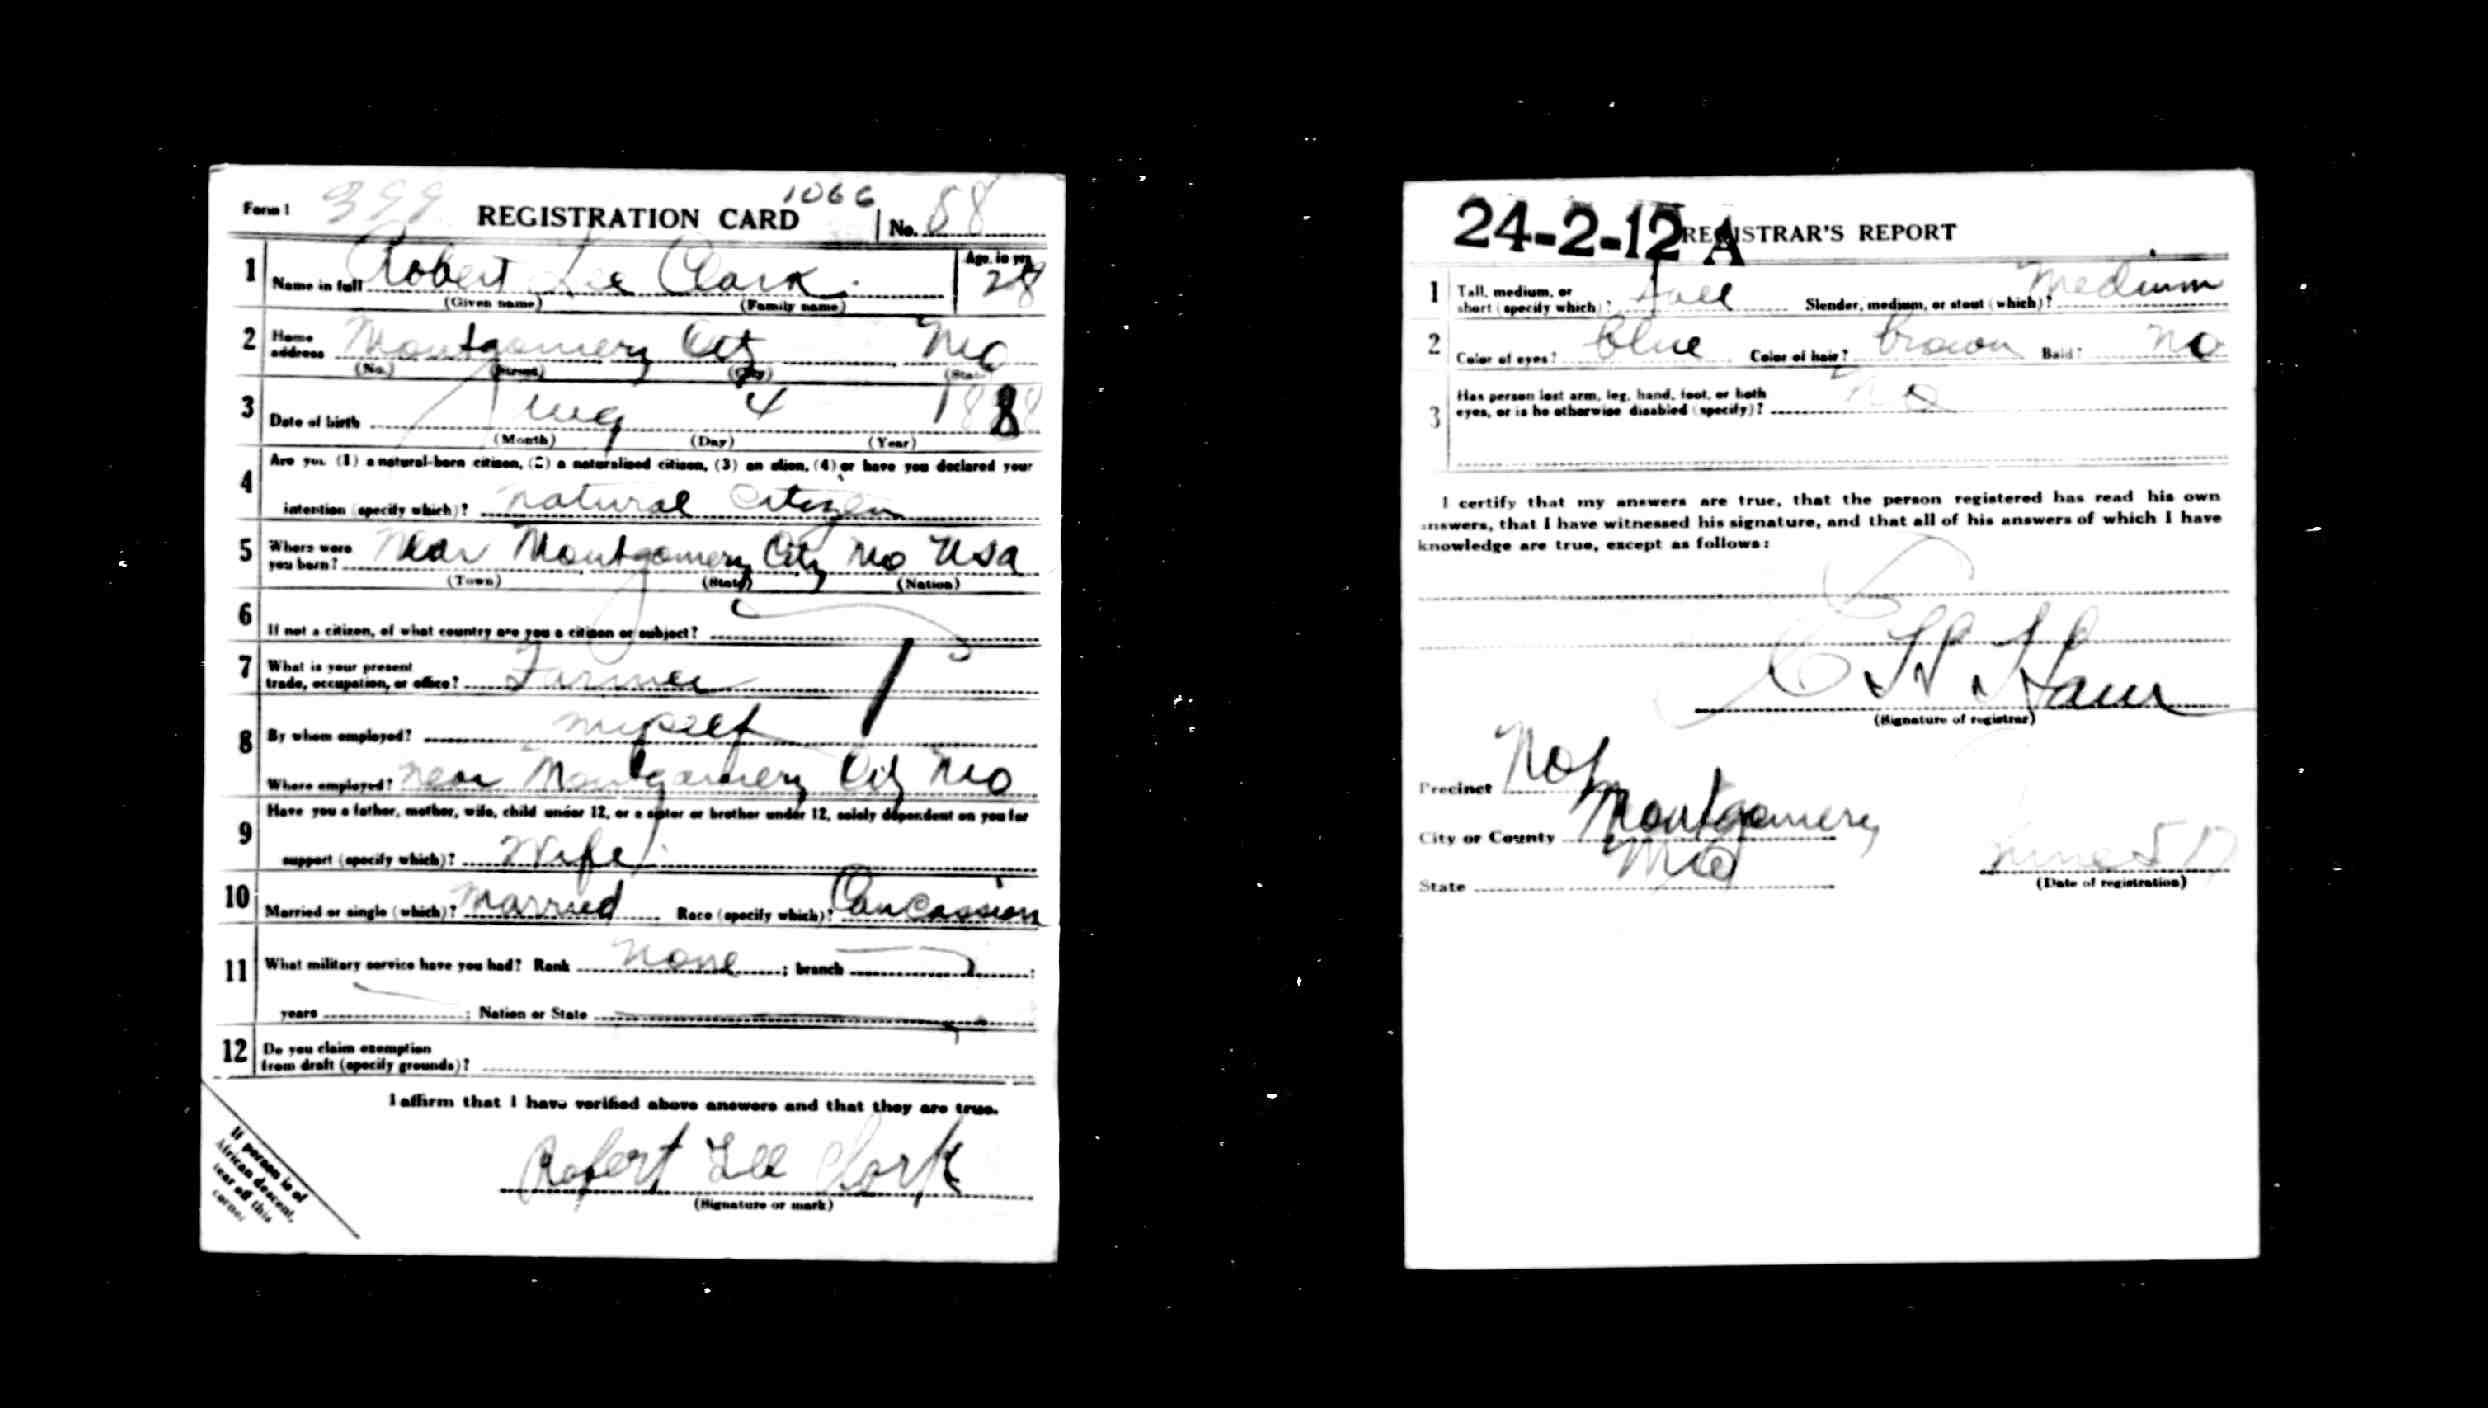 Form 1 399 REGISTRATION CARD 1066 No. 58
1 Name in full Robert Lee Clark Age, in yrs 28
(Given name) (Family name)
2 Home address Montgomery City Mo
(No.) (Street) (City) (State)
3 Date of birth Aug 4 1888
(Month) (Day) (Year)
4 Are you (1) a natural-born citizen, (2) a naturalized citizen, (3) an alien, (4) or have you declared your
intention (specify which)? natural citizen
5 Where were you born? Near Montgomery City Mo USA
(Town) (State) (Nation)
6 If not a citizen, of what country are you a citizen or subject?
7 What is your present trade, occupation, or office? Farmer
8 By whom employed? myself
Where employed? near Montgomery City Mo
9 Have you a father, mother, wife, child under 12, or a sister or brother under 12, solely dependent on you for
support (specify which)? Wife
10 Married or single (which)? Married Race (specify which)? Caucassion
11 What military service have you had? Rank none ; branch
years ; Nation or State
12 Do you claim exemption
from draft (specify grounds)?
I affirm that I have verified above answers and that they are true.
Robert Lee Clark
(Signature or mark)
If person is of
African descent,
tear off this
corner
24-2-12 A REGISTRAR'S REPORT
1 Tall, medium, or short (specify which)? Tall Slender, medium, or stout (which)? Medium
2 Color of eyes? Blue Color of hair? Brown Bald? No
3 Has person lost arm, leg, hand, foot, or both
eyes, or is he otherwise disabled (specify)? No
I certify that my answers are true, that the person registered has read his own
answers, that I have witnessed his signature, and that all of his answers of which I have
knowledge are true, except as follows:
C H
(Signature of registrar)
Precinct No 1
City or County Montgomery
State Mo June 5 17
(Date of registration)